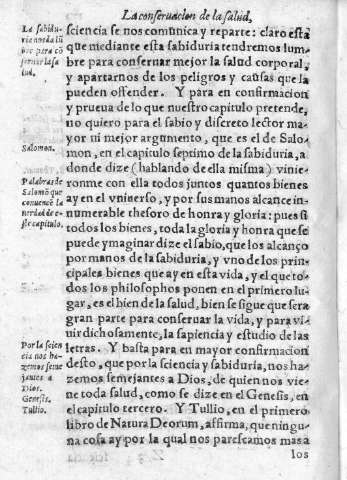 La conseruacion de la salud.
La sabidu-
ria no da lũ
bre para cõ
seruar la sa
lud.
sciencia se nos comunica y reparte: claro esta
que mediante esta sabiduria tendremos lum-
bre para conseruar mejor la salud corporal,
y apartarnos de los peligros y causas que la
pueden offender. Y para en confirmacion
y prueua de lo que nuestro capitulo pretende,
no quiero para el sabio y discreto lector ma-
yor ni mejor argumento, que es el de Salo-
Salomon.
mon, en el capitulo septimo de la sabiduria, a
donde dize (hablando de ella misma) vinie-
Palabras de
Salomõ que
conuencẽ la
verdad de e-
ste capitulo.
ronme con ella todos juntos quantos bienes
ay en el vniuerso, y por sus manos alcance in-
numerable thesoro de honra y gloria: pues si
todos los bienes, toda la gloria y honra que se
puede ymaginar dize el sabio, que los alcanço
por manos de la sabiduria, y vno de los prin-
cipales bienes que ay en esta vida, y el que to-
dos los philosophos ponen en el primero lu-
gar, es el bien de la salud, bien se sigue que sera
gran parte para conseruar la vida, y para vi-
uir dichosamente, la sapiencia y estudio de las
Por la scien
cia nos ha-
zemos seme
jantes a
Dios.
Genesis.
Tullio.
letras. Y basta para en mayor confirmacion
desto, que por la sciencia y sabiduria, nos ha-
zemos semejantes a Dios, de quien nos vie-
ne toda salud, como se dize en el Genesis, en
el capitulo tercero. Y Tullio, en el primero
libro de Natura Deorum, affirma, que ningu-
na cosa ay por la qual nos parescamos mas a
los